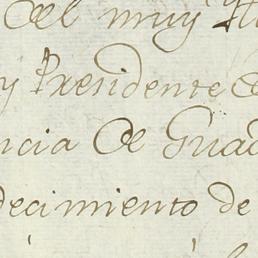 del muy
y Presidente
ncia de Guad
decimiento de